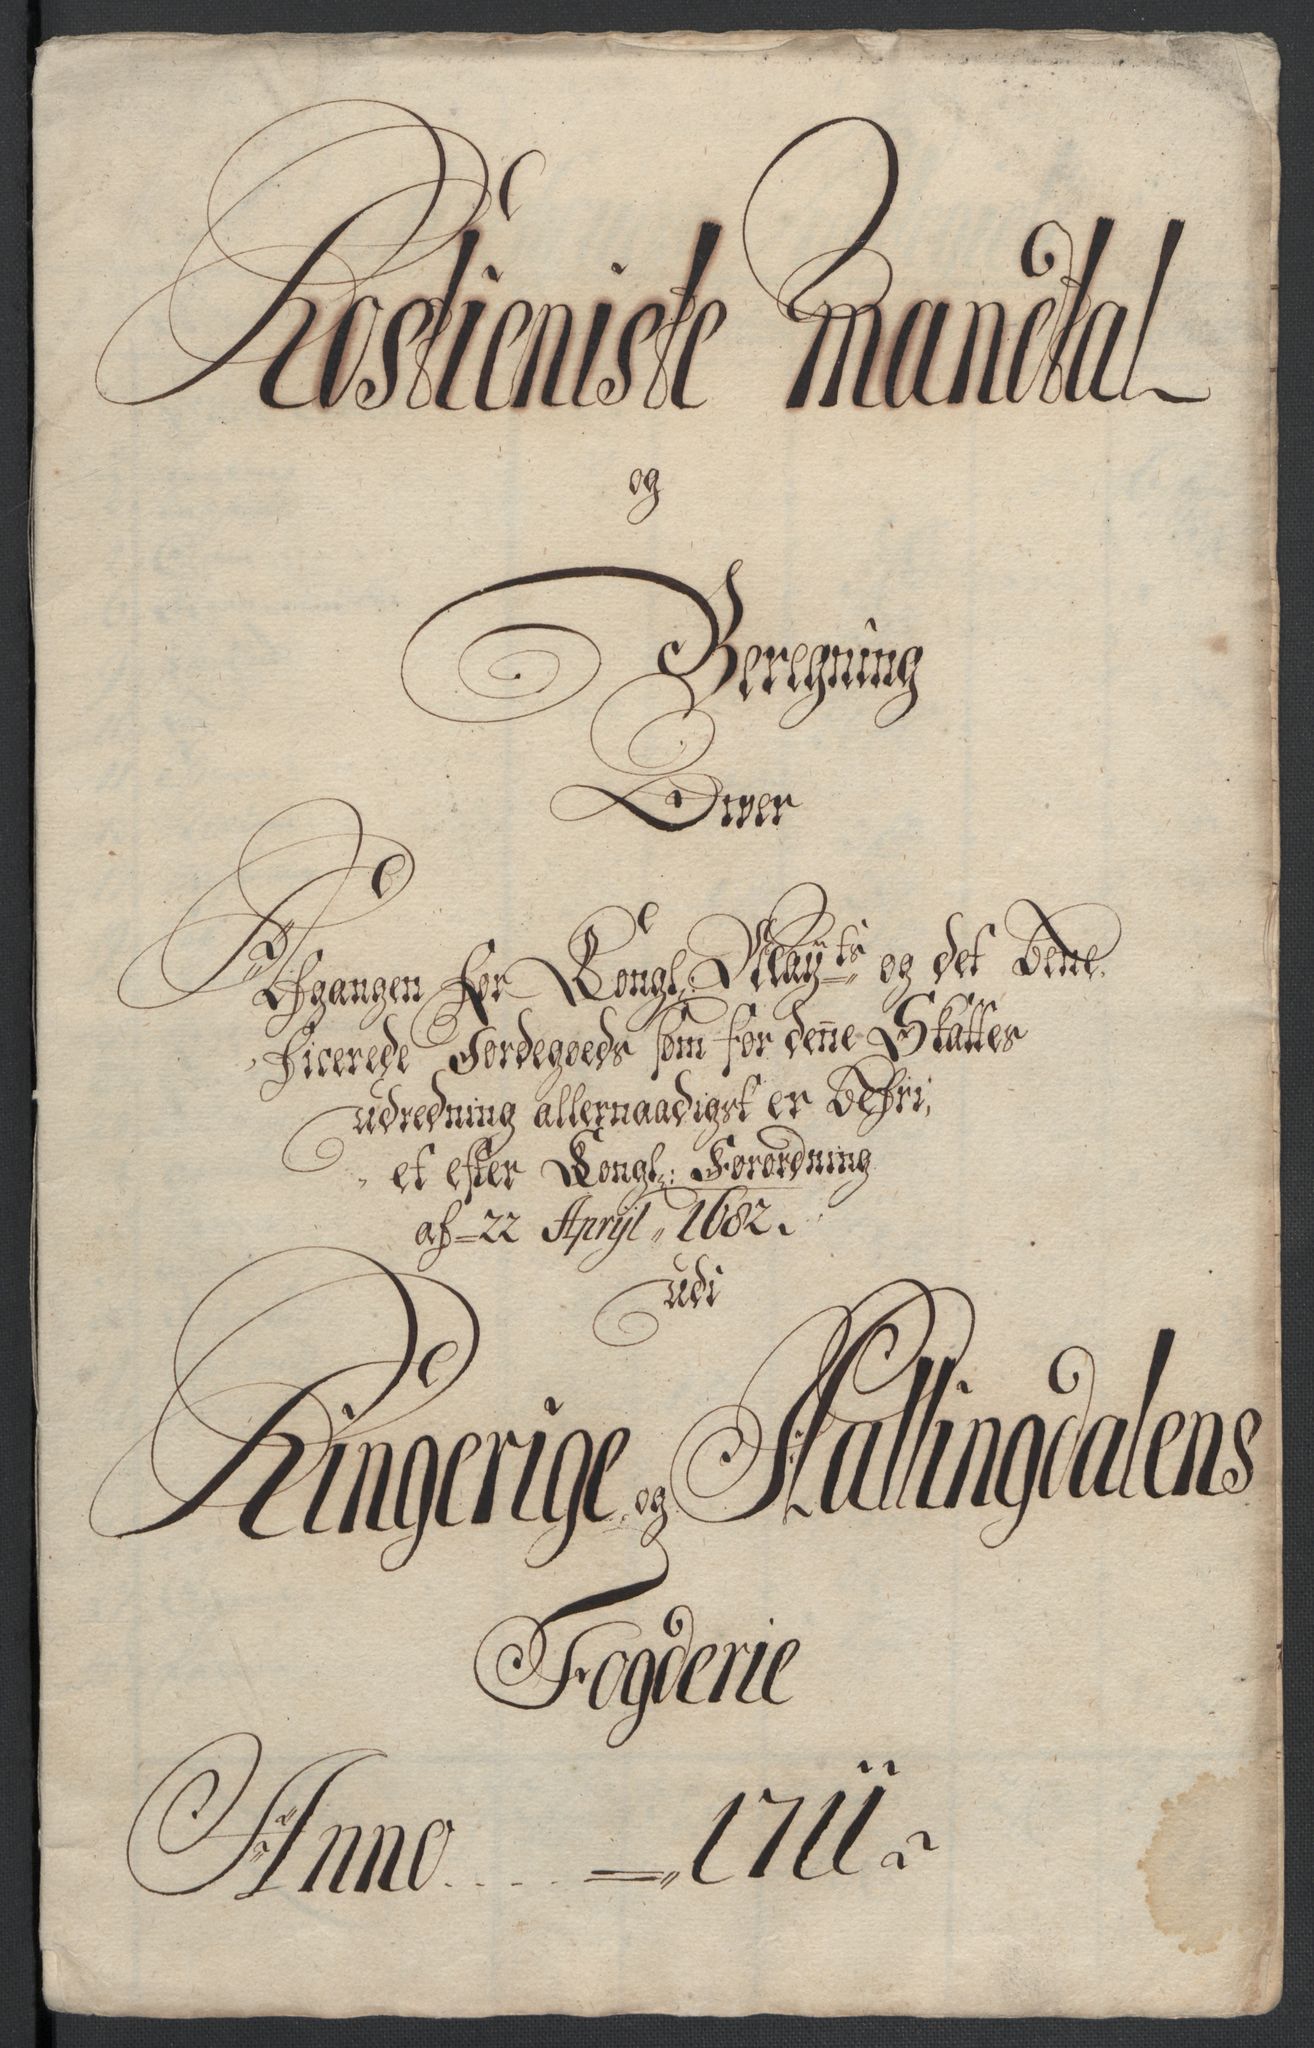 Rostieniste Mandtal
og
Beregning
Over
Afgangen for Kongl: Mayts og det bene
ficerede Jordegoeds som for denne Skattes
udredning allernaadigst er befri,
et efter Kongl: Forordning
af 22 Apryl 1682.
udi
Ringerige og Hallingdalens
Fogderie
Anno .... 1711